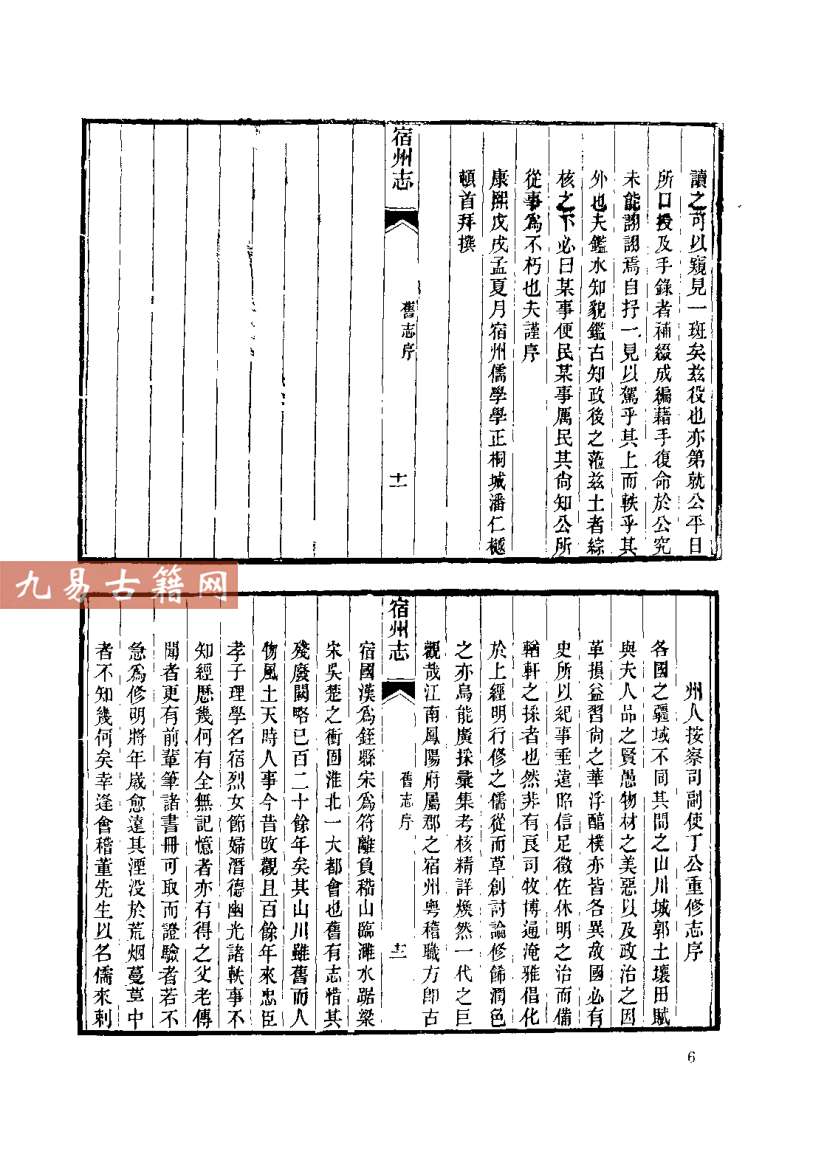 讀之可以窺見一斑矣茲役也亦第就公平日
所口授及手錄者補綴成編藉手復命於公究
未能詡詡焉自抒一見以駕乎其上而軼乎其
外也夫鑑水知貌鑑古知政後之蒞茲土者綜
核之下必曰某事便民某事厲民其尙知公所
從事爲不朽也夫謹序
康熙戊戌孟夏月宿州儒學學正桐城潘仁樾
頓首拜撰
宿州志
舊志序
十一
九易古籍网
州人按察司副使丁公重修志序
各國之疆域不同其間之山川城郭土壤田賦
與夫人品之賢愚物材之美惡以及政治之因
革損益習尙之華浮醕樸亦皆各異故國必有
史所以紀事垂遠昭信足徵佐休明之治而備
輶軒之採者也然非有良司牧博通淹雅倡化
於上經明行修之儒從而草創討論修飾潤色
之亦烏能廣採彙集考核精詳煥然一代之巨
觀哉江南鳳陽府屬郡之宿州粵稽職方卽古
宿州志
舊志序
十二
宿國漢爲銍縣宋爲符離負稽山臨濉水踞梁
宋吳楚之衝固淮北一大都會也舊有志惜其
殘廢闕略已百二十餘年矣其山川雖舊而人
物風土天時人事今昔改觀且百餘年來忠臣
孝子理學名宿烈女節婦潛德幽光諸軼事不
知經歷幾何有全無記憶者亦有得之父老傳
聞者更有前輩筆諸書冊可取而證驗者若不
急爲修明將年歲愈遠其湮没於荒烟蔓草中
者不知幾何矣幸逢會稽董先生以名儒來刺
6